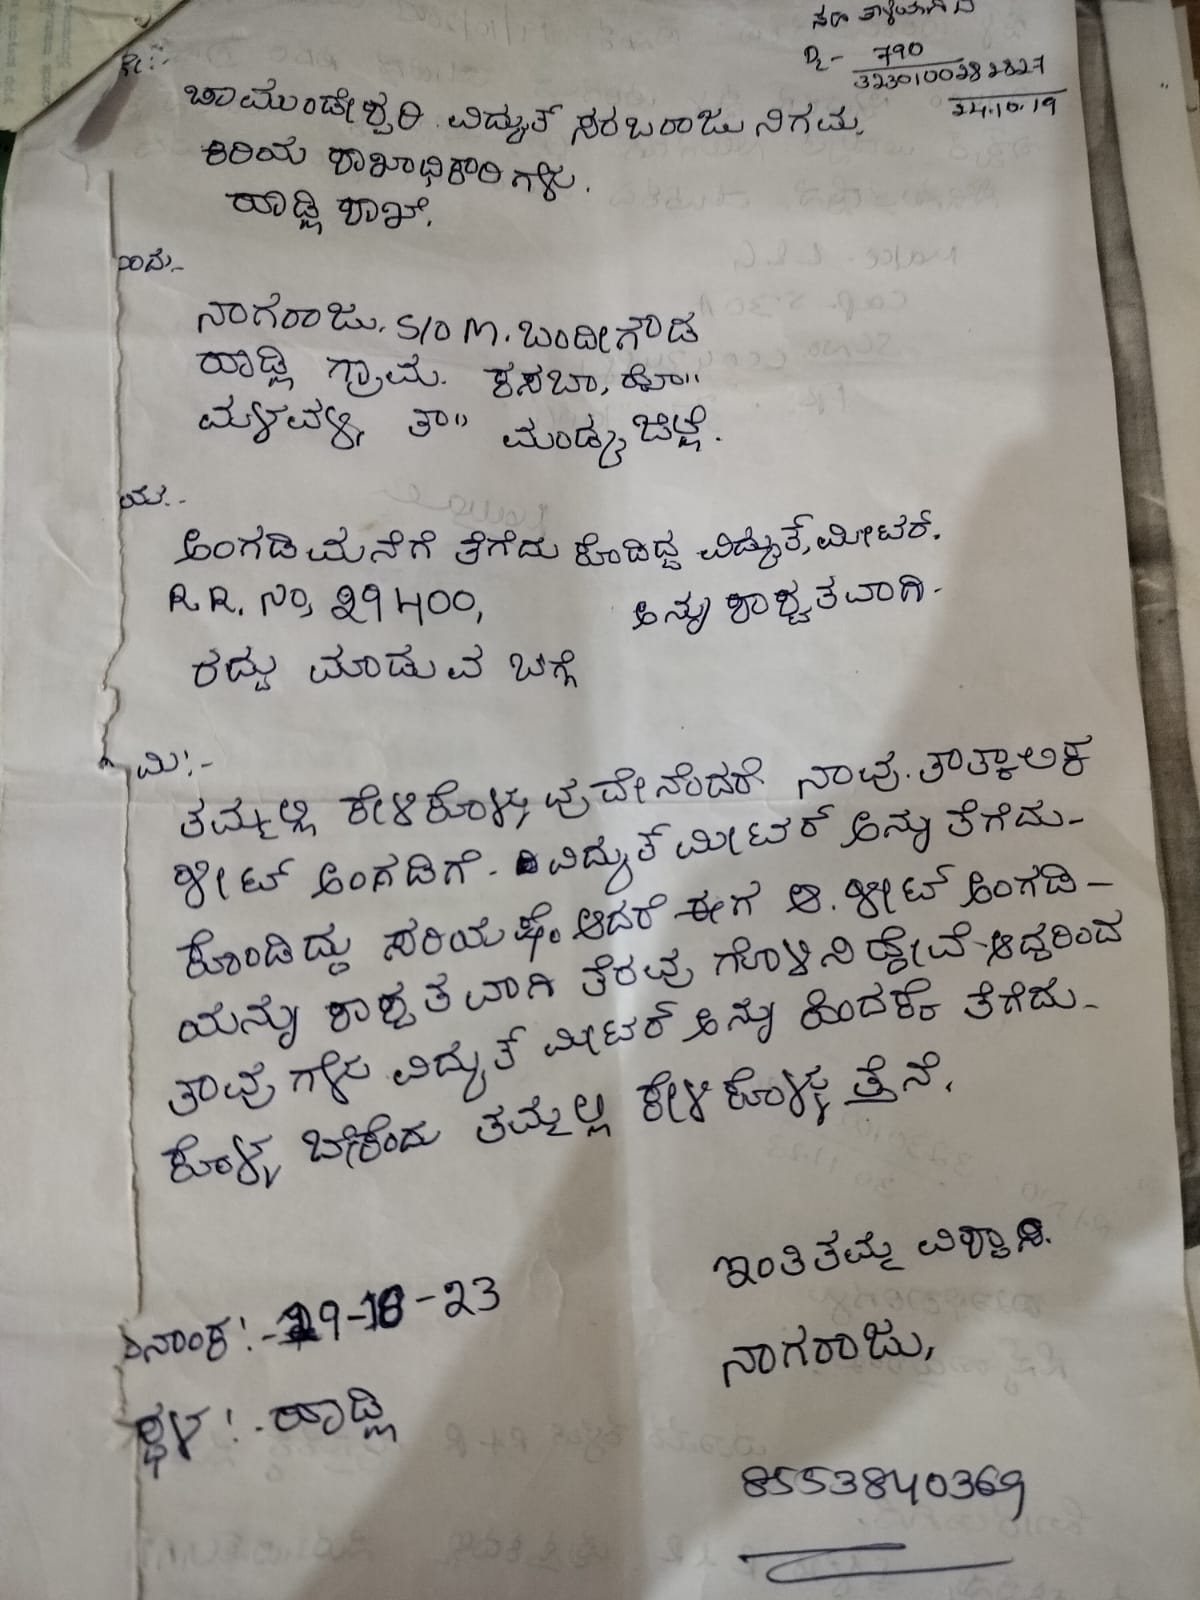 DL- 790
3230100282827
24.10.19
ಚಾಮುಂಡೇಶ್ವರಿ ವಿದ್ಯುತ್ ಸರಬರಾಜು ನಿಗಮ,
ಕಿರಿಯ ಶಾಖಾಧಿಕಾರಿಗಳು.
ಹಾಡ್ಲಿ ಶಾಖೆ.
ಇಂದ:-
ನಾಗರಾಜು. S/o M. ಬಂದೀಗೌಡ
ಹಾಡ್ಲಿ ಗ್ರಾಮ. ಕಸಬಾ, ಹೋ"
ಮಳವಳ್ಳಿ ತಾ" ಮಂಡ್ಯ ಜಿಲ್ಲೆ.
ಅಂಗಡಿ ಮನೆಗೆ ತೆಗೆದು ಕೊಂಡಿದ್ದ ವಿದ್ಯುತ್, ಮೀಟರ್.
R.R. ನಂ, 29400, ಅನ್ನು ಶಾಶ್ವತವಾಗಿ-
ರದ್ದು ಮಾಡುವ ಬಗ್ಗೆ
ತಮ್ಮಲ್ಲಿ ಕೇಳಿಕೊಳ್ಳುವುದೇನೆಂದರೆ ನಾವು. ತಾತ್ಕಾಲಿಕ
ಶೀಟ್ ಅಂಗಡಿಗೆ- ವಿದ್ಯುತ್ ಮೀಟರ್ ಅನ್ನು ತೆಗೆದು-
ಕೊಂಡಿದ್ದು ಸರಿಯಷ್ಟೆ ಆದರೆ ಈಗ ಆ. ಶೀಟ್ ಅಂಗಡಿ-
ಯನ್ನು ಶಾಶ್ವತವಾಗಿ ತೆರವು ಗೊಳಿಸಿದ್ದೇವೆ-ಆದ್ದರಿಂದ
ತಾವು ಗಳು ವಿದ್ಯುತ್ ಮೀಟರ್ ಅನ್ನು ಹಿಂದಕ್ಕೆ ತೆಗೆದು-
ಕೊಳ್ಳ ಬೇಕೆಂದು ತಮ್ಮಲ್ಲಿ ಕೇಳಿಕೊಳ್ಳುತ್ತೇನೆ.
ಇಂತಿ ತಮ್ಮ ವಿಶ್ವಾಸಿ.
ದಿನಾಂಕ:- -10-23
ನಾಗರಾಜು,
ಸ್ಥಳ:. ಹಾಡ್ಲಿ
8553840369